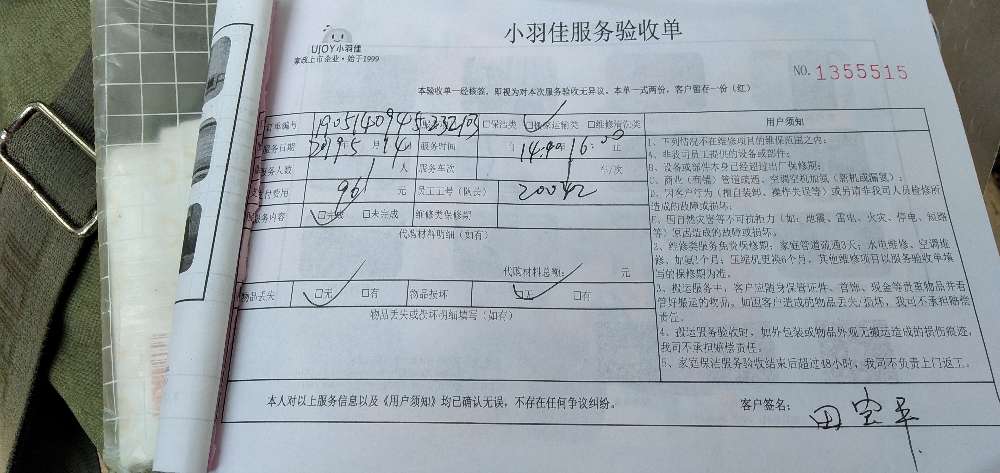 小羽佳服务验收单
UJOY小羽佳
家政上市企业·始于1999
NO. 1355515
本验收单一经核签，即视为对本次服务验收无异议。本单一式两份，客户留存一份（红）
订单编号 □保洁类 □搬家运输类 □维修清洗类
服务日期 2019年5月14日 服务时间
服务人数 1 人 服务车次 车/次
90 元 员工工号（队长） 20042
服务内容 □完成 □未完成 维修类保修期
代购材料明细（如有）
代购材料总额： 元
物品丢失 □无 □有 物品损坏 □无 □有
物品丢失或损坏明细填写（如有）
用户须知
1、下列情况不在维修项目的维保范围之内：
A、非我司员工提供的设备或部件；
B、设备或部件本身已经超过出厂保修期；
C、商业（商铺）管道疏通、空调空机加氨（新机或漏氨）；
D、因客户行为（擅自装卸、操作失误等）或另请非我司人员检修所
造成的故障或损坏；
E、因自然灾害等不可抗拒力（如：地震、雷电、火灾、停电、短路
等）原因造成的故障或损坏。
2、维修类服务免费保修期：家庭管道疏通3天；水电维修、空调维
修、加氨1个月；压缩机更换6个月，其他维修项目以服务验收单填
写的保修期为准。
3、搬运服务中，客户应随身保管证件、首饰、现金等贵重物品并看
管好搬运的物品。如因客户造成的物品丢失/损坏，我司不承担赔偿
责任。
4、搬运服务验收时，如外包装或物品外观无搬运造成的损伤痕迹，
我司不承担赔偿责任。
5、家庭保洁服务验收结束后超过48小时，我司不负责上门返工。
本人对以上服务信息以及《用户须知》均已确认无误，不存在任何争议纠纷。
客户签名：